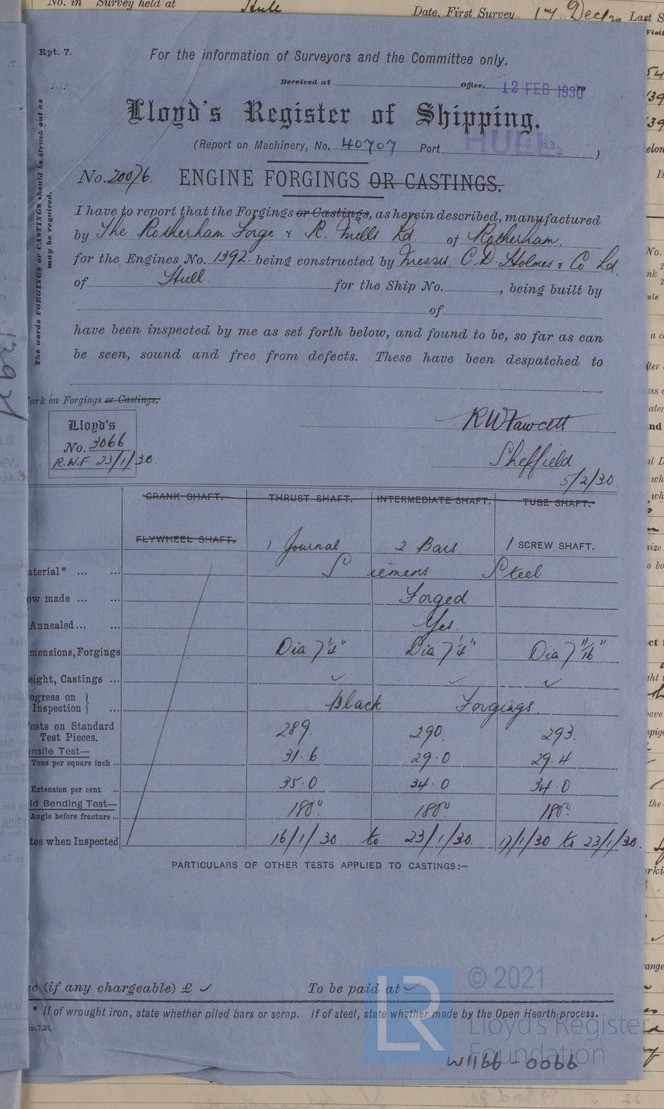 No. in Survey held at Hull
Date. First Survey 17th Decr Last S
Rpt. 7.
For the information of Surveyors and the Committee only.
Received at Office, 12 FEB 1930
Lloyd's Register of Shipping.
(Report on Machinery, No. 40707 Port HULL. )
No. 20076. ENGINE FORGINGS OR CASTINGS.
The words FORGINGS or CASTINGS should be struck out as
may be required.
I have to report that the Forgings or Castings, as herein described, manufactured
by The Rotherham Forge & R. Mills Ld. of Rotherham
for the Engines No. 1392. being constructed by Messrs. C. D. Holmes & Co Ld.
of Hull for the Ship No. , being built by
of
have been inspected by me as set forth below, and found to be, so far as can
be seen, sound and free from defects. These have been despatched to
ark on Forgings or Castings.
Lloyd's
No. 3066
R.W.F. 23/1/30
RWFawcett
Sheffield
5/2/30
CRANK SHAFT. THRUST SHAFT. INTERMEDIATE SHAFT. TUBE SHAFT.
FLYWHEEL SHAFT. 1 Journal 2 Bars 1 SCREW SHAFT.
aterial* ... ... Siemens Steel
ow made ... ... Forged
Annealed ... ... Yes.
mensions, Forgings Dia 7 1/4" Dia 7 1/4" Dia 7 "/16"
eight, Castings ... ✓ ✓ ✓
ogress on }
Inspection } Black Forgings
ests on Standard
Test Pieces. 289. 290. 293.
nsile Test—
Tons per square inch ... 31.6 29.0 29.4
Extension per cent ... 35.0 34.0 34.0
ld Bending Test—
Angle before fracture ... 180° 180° 180°
tes when Inspected 16/1/30 to 23/1/30. 17/1/30 to 23/1/30.
PARTICULARS OF OTHER TESTS APPLIED TO CASTINGS:—
e (if any chargeable) £ ✓ To be paid at ✓
* If of wrought iron, state whether piled bars or scrap. If of steel, state whether made by the Open Hearth process.
m.7,28.
LR
© 2021
Lloyd's Register
Foundation
W1166-0066